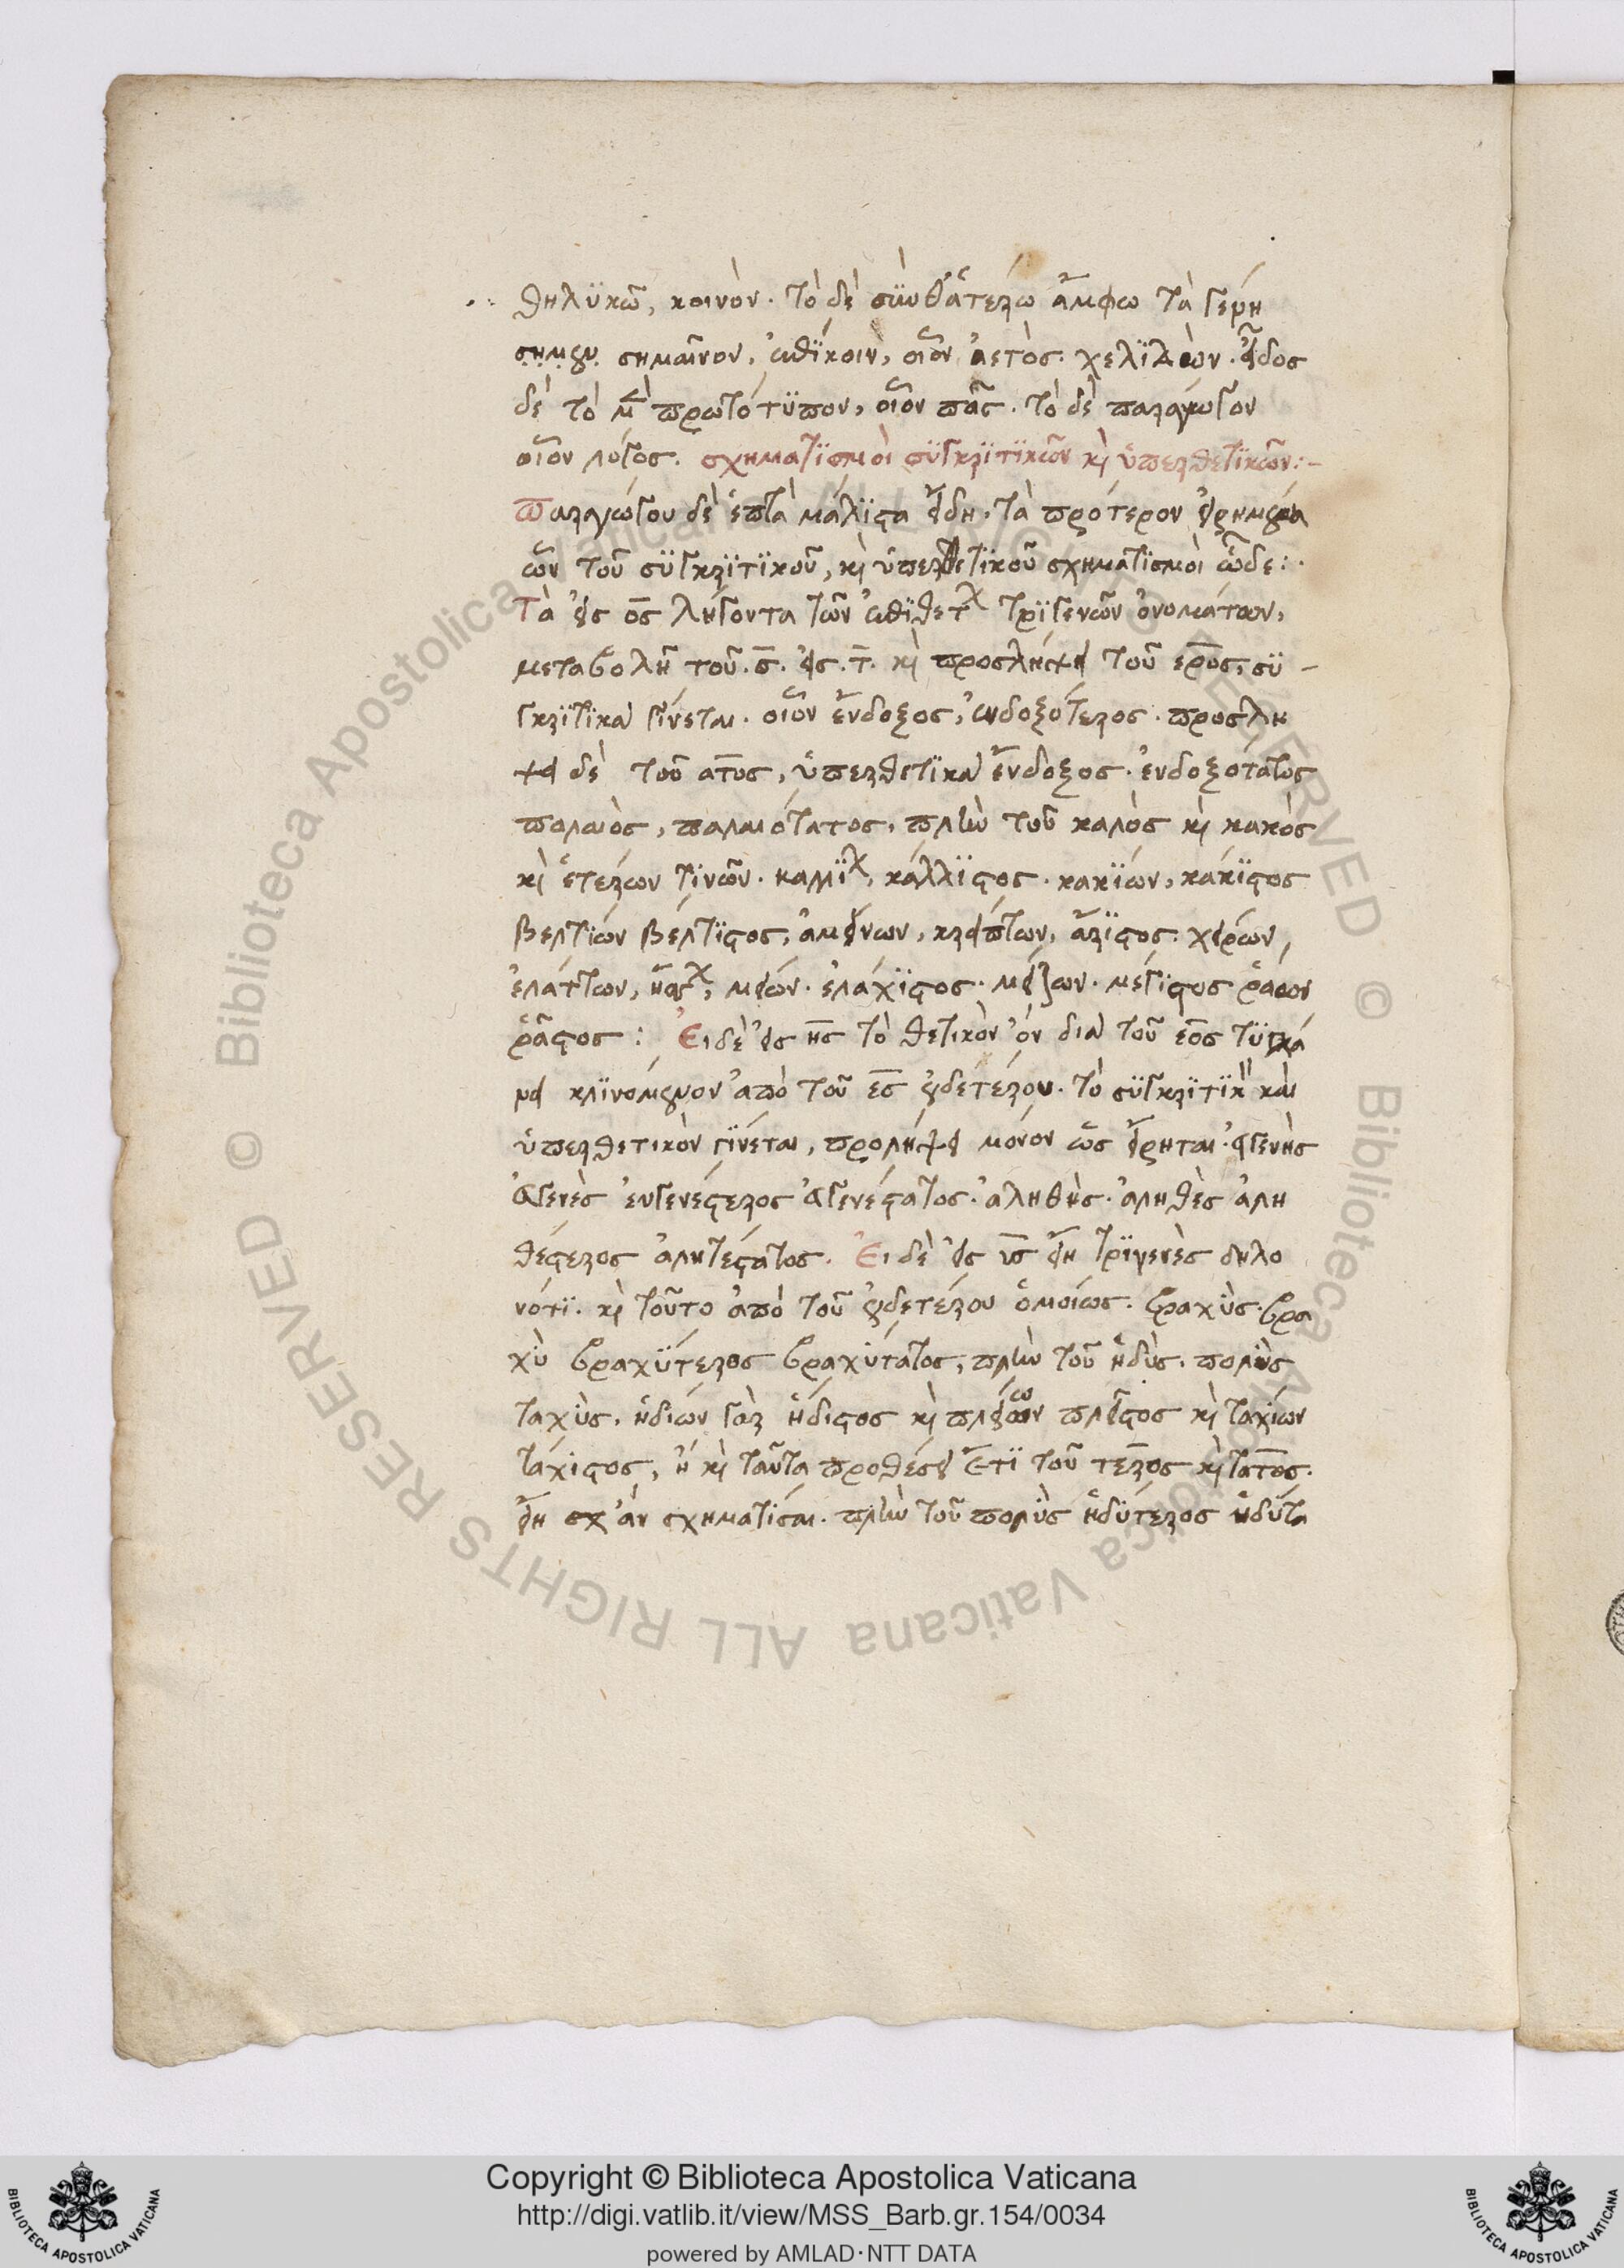 θηλϋκῶ, κοινὸν. τὸ δὲ σϋὺν θἀτέρω ἄμφω τὰ γένη
σημεν σημαῖνον, ἐπϊκοινὸν, οἷον ἀετὸς. χελϊδὼν. εἶδος
δὲ τὸ μὲν πρωτότϋπον, οἷον πᾶς. τὸ δὲ παραγωγον
οἷον λόγος. σχηματϊσμοὶ σϋγκρϊτϊκῶν καὶ ὑπερθετϊκῶν:-
παραγώγου δὲ ἑπτὰ μάλϊστα εἴδη. τὰ πρότερον εἰρημένα
ὧν τοῦ σϋγκρϊτϊκοῦ, καὶ ὑπερθετϊκοῦ σχηματϊσμοὶ ὧδε:.
Τὰ εἰς ος λήγοντα τῶν ἐπϊθετ τρϊγενῶν ὀνομάτων,
μεταβολῆ τοῦ .ς. εἰς .τ. καὶ προσλήψει τοῦ ερος, σϋ-
γκρϊτϊκὰ γίνεται. οἷον ἔνδοξος, ἐνδοξότερος. προσλή
ψει δὲ τοῦ ατος, ὑπερθετϊκὰ ἔνδοξος. ἐνδοξότατος
παλαιὸς, παλαιότατος, πλὴν τοῦ καλὸς καὶ κακὸς
καὶ ἑτέρων τϊνῶν. καλλϊ, κάλλϊστος. κακϊών, κάκϊστος
βελτϊών βέλτϊστος, ἀμείνων, κρείττων, ἄρϊστος. χείρων,
ἐλάττων, ἥττ, μείών. ἐλάχϊστος. μείζων. μέγιστος ῥάων
ῥᾶστος: Ἐι δὲ εἰς ης τὸ θετικὸν ὂν διὰ τοῦ εος τϋγχά
νει κλϊνόμενον ἀπὸ τοῦ ες οὐδετέρου. τὸ σϋγκρϊτϊκ καὶ
ὑπερθετικὸν γϊνεται, προλήψει μόνον ὡς εἴρηται. εὐγενὴς
εὐγενὲς εὐγενέστερος εὐγενέστατος. ἀληθὴς. ἀληθὲς ἀλη
θέστερος ἀλητέστατος. Ἐι δὲ εἰς υς εἴη τρϊγενὲς δηλο
νότϊ. καὶ τοῦτο ἀπὸ τοῦ οὐδετέρου ὁμοίως. βραχὺς. βρα
χὺ βραχϋτερος βραχύτατος, πλὴν τοῦ ἡδὺς. πολὺς
ταχὺς, ἡδιών γὰρ ἥδιστος καὶ πλείων πλεῖστος καὶ ταχίων
τάχιστος, εἰ καὶ ταῦτα προθέσει ἔτϊ τοῦ τερος καὶ τατος.
εἴη ἂν σχηματϊσαι. πλὴν τοῦ πολὺς ἡδϋτερος ἡδϋτα